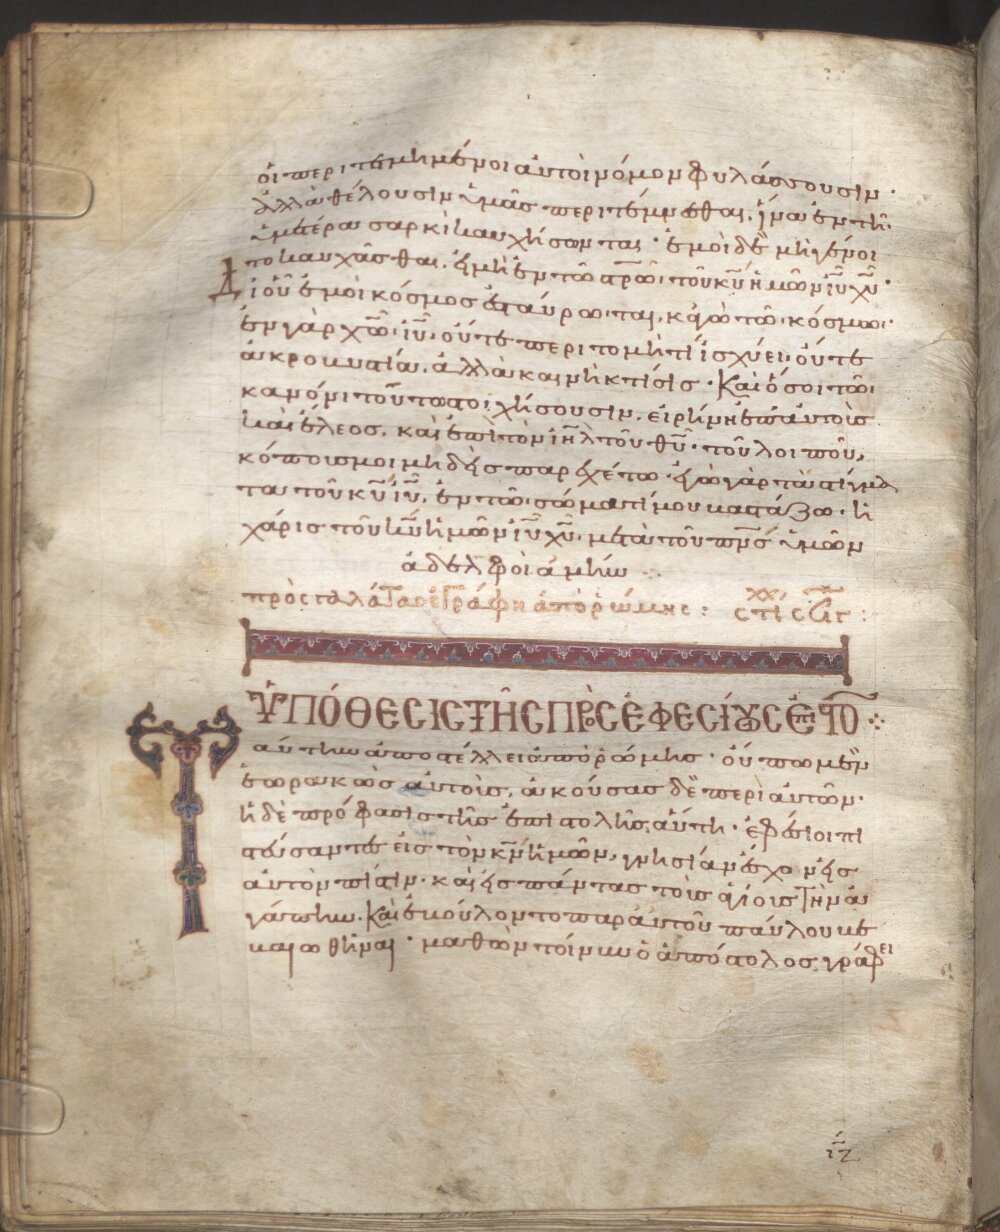 οἱ περιτεμνημένοι αὐτοὶ νόμον φυλάσσουσιν·
ἀλλὰ θέλουσιν ὑμᾶς περιτέμνεσθαι, ἵνα ἐν τῆ
ὑμετέρα σαρκὶ καυχήσωνται· ἐμοὶ δὲ μὴ γένοι
το καυχᾶσθαι, εἰ μὴ ἐν τῶ στρῶ τοῦ κυ ἡμῶν ιυ χυ·
δι οὗ ἐμοὶ κόσμος ἐσταύρωται, κἀγὼ τῶ κόσμω·
ἐν γὰρ χω ιυ, οὔτε περιτομή τι ἰσχύει, οὔτε
ἀκροβυστία, ἀλλὰ καινὴ κτίσις· Καὶ ὅσοι τῶ
κανόνι τούτω στοιχήσουσιν, εἰρήνη ἐπ αὐτοὺς
καὶ ἔλεος, καὶ ἐπὶ τὸν ιηλ τοῦ θυ· τοῦ λοιποῦ,
κόπους μοι μηδεὶς παρεχέτω· ἐγὼ γὰρ τὰ στίγμα
τα τοῦ κυ ιυ, ἐν τῶ σώματί μου βαστάζω· ἡ
χάρις τοῦ κυ ἡμῶν ιυ χυ, μετὰ τοῦ πνς ὑμῶν
ἀδελφοί ἀμήν
πρὸς γαλάτας ἐγράφη ἀπὸ ῥώμης:
ὙΠΌΘΕCΙC ΤῆC ΠΡὸC ἘΦΕCΊΟΥC ἘΠΙCΤΟ
Ταύτην ἀποστέλλει ἀπὸ ῥώμης· οὔπω μὲν
ἑωρακὼς αὐτοὺς, ἀκούσας δὲ περὶ αὐτῶν·
ἡ δὲ πρόφασις τῆς ἐπιστολῆς, αὕτη· ἐφέσιοι πι
στεύσαντες εἰς τὸν κν ἡμῶν, γνησίαν ἔσχον εἰς
αὐτὸν πίστιν· καὶ εἰς πάντας τοὺς ἁγίους τὴν ἀ
γάπην· Καὶ ἐβούλοντο παρ αὐτοῦ παύλου βε
βαιωθῆναι· μαθὼν τοίνυν ὁ ἀπόστολος, γράφει
ιζ